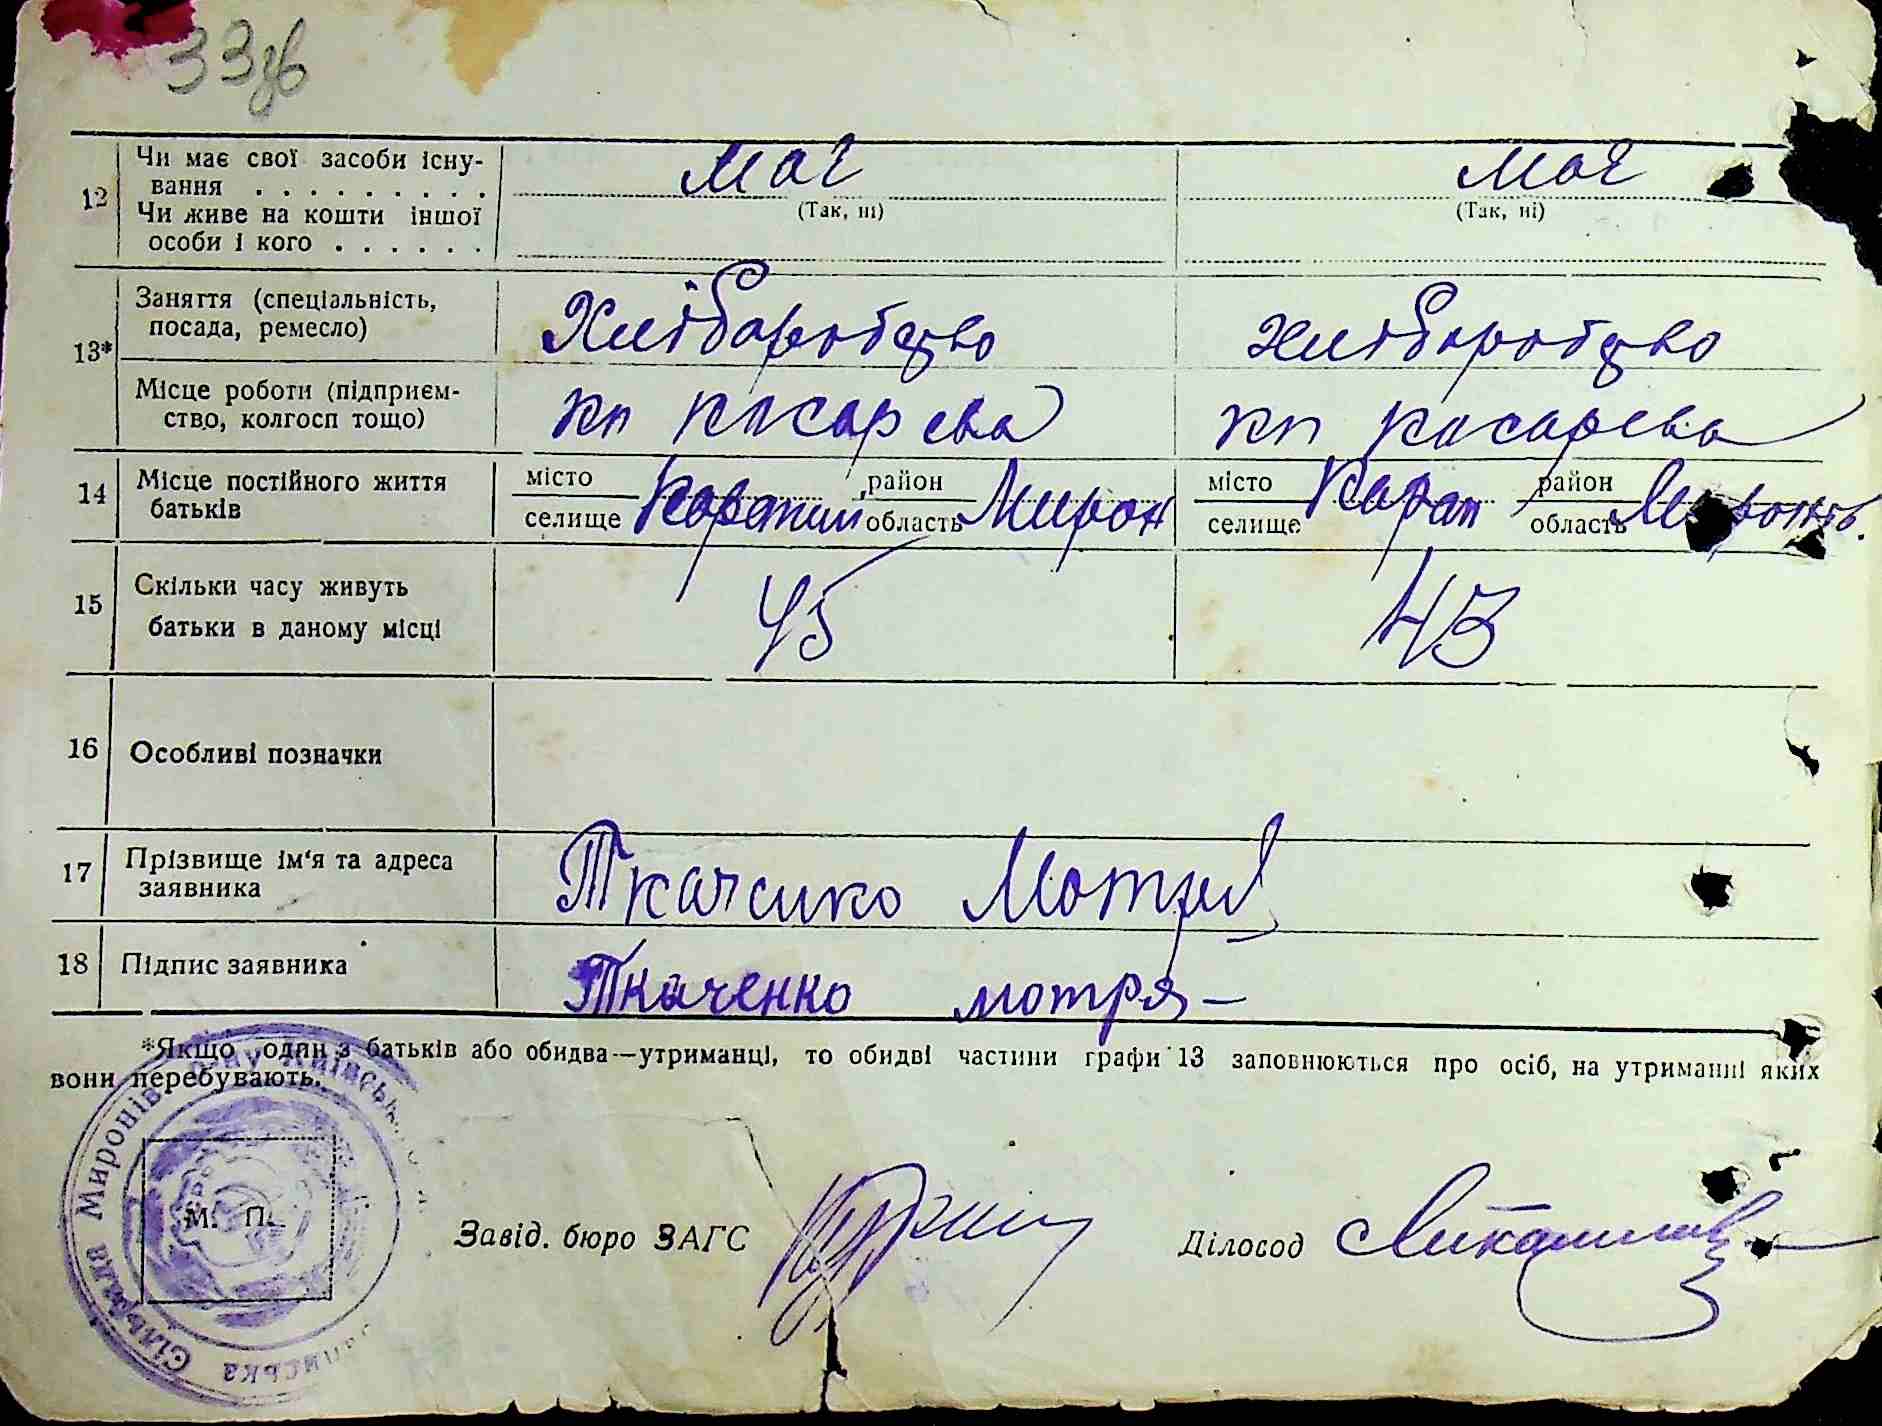 33зв
12 Чи має свої засоби існу- має має
вання . . . . . . . . .
(Так, ні) (Так, ні)
Чи живе на кошти іншої
особи і кого . . . . . .
13* Заняття (спеціальність, Хліборобство хліборобство
посада, ремесло)
Місце роботи (підприєм- кп косарева кп косарева
ство, колгосп тощо)
14 Місце постійного життя місто район місто район
батьків селище область Мирон селище Карап область
15 Скільки часу живуть 45 43
батьки в даному місці
16 Особливі позначки
17 Прізвище ім'я та адреса Ткаченко Мотря
заявника
18 Підпис заявника Ткаченко мотря —
*Якщо один з батьків або обидва—утриманці, то обидві частини графи 13 заповнюються про осіб, на утриманні яких
вони перебувають.
М. П.
Завід. бюро ЗАГС Діловод
Сільрада Миронів